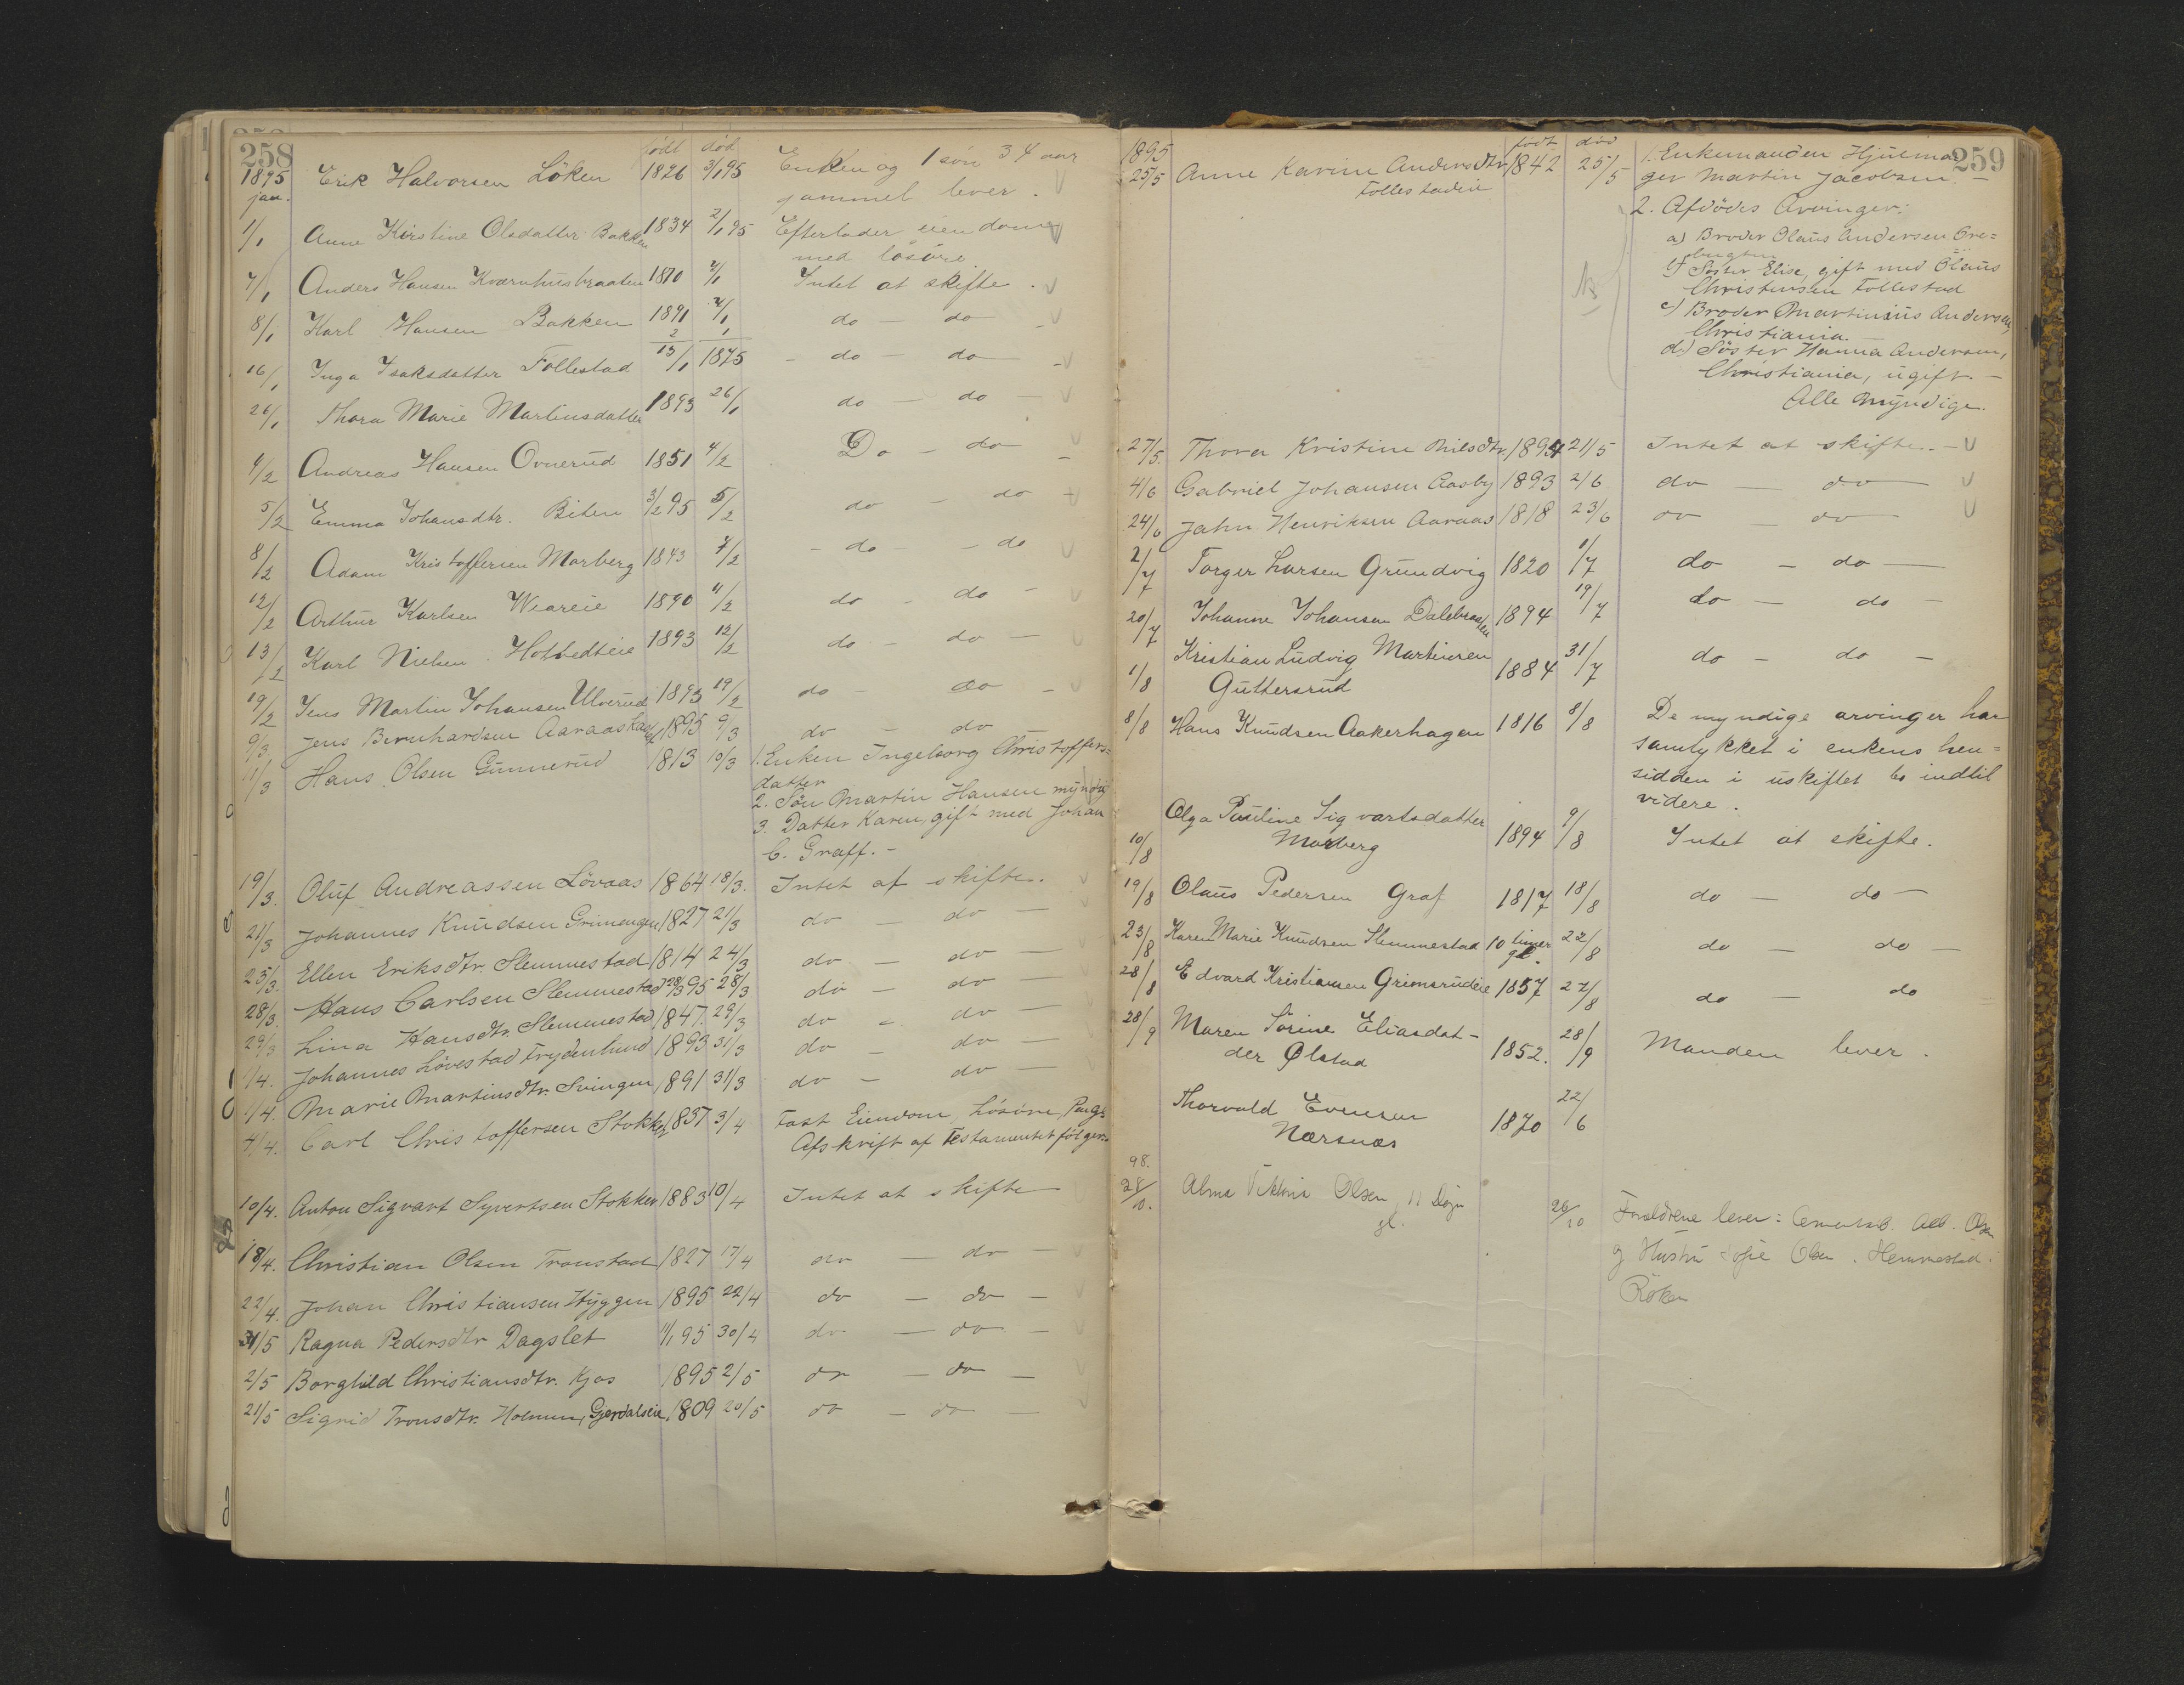 258
født død
1895 Erik Halvorsen Löken 1826 3/1 95 Enken og 1 sön 34 aar
jan. gammel lever.
1/1 Anne Kirstine Olsdatter Bakken 1834 2/1 95 Efterlader eiendom
med lösöre
7/1 Anders Hansen Kværnhusbraaten 1810 7/1 Intet at skifte.
8/1 Karl Hansen Bakken 1891 7/1 do – do
16/1 Inga Isaksdatter Follestad 13/1 1895 – do – do
26/1 Thora Marie Martinsdatter 1893 26/1 do – do –
4/2 Andreas Hansen Ovnerud 1851 4/2 Do – do –
5/2 Emma Johansdtr. Biten 3/2 95 5/2 do – do –
8/2 Adam Kristoffersen Morberg 1843 7/2 – do – – do
12/2 Arthur Karlsen Weareie 1890 11/2 do – do –
13/2 Karl Nielsen Hottvedteie 1893 12/2 do – do –
19/2 Jens Martin Johansen Ulverud 1893 19/2 do – do –
9/3 Jens Bernhardsen Aaraas 1895 9/3 do – do
11/3 Hans Olsen Gunnerud 1813 10/3 1. Enken Ingeborg Christoffers=
datter
2. Sön Martin Hansen myndig
3. Datter Karen, gift med Johan
C. Graff. –
19/3. Oluf Andreassen Lövaas 1864 18/3. Intet at skifte.
21/3 Johannes Knudsen Grimengen 1827 21/3 do – do –
25/3. Ellen Eriksdtr. Slemmestad 1814 24/3 do – do –
28/3. Hans Carlsen Slemmestad 28/3 95 28/3 do – do –
29/3 Lina Hansdtr. Slemmestad 1847. 29/3 do – do –
1/4. Johannes Lövestad Frydenlund 1893 31/3 do – do –
1/4. Marie Martinsdtr. Svingen 1891 31/3 do – do –
4/4. Carl Christoffersen Stokker 1837 3/4 Fast Eiendom, Lösöre, Penge
Afskrift af Testamentet fölger.
10/4. Anton Sigvart Syvertsen Stokker 1883 10/4 Intet at skifte
18/4. Christian Olsen Tronstad 1827 17/4 do – do –
22/4. Johan Christiansen Hyggen 1895 22/4 do – do –
31/5 Ragna Pedersdtr Dagslet 11/1 95 30/4 do – do –
2/5 Borghild Christiansdtr. Kjos 1895 2/5 do – do –
21/5 Sigrid Tronsdtr. Holmen, Gjerdalseie 1809 20/5 do – do –
259
1895 født død
25/5 Anne Karine Andersdtr 1842 25/5 1. Enkemanden Hjulma
Follestadeie ger Martin Jacobsen. –
2. Afdödes Arvinger:
a) Broder Olaus Andersen Ore=
bugten
b) Söster Elise, gift med Olaus
Christensen Follestad
c) Broder Martinius Andersen,
Christiania. –
d.) Söster Hanna Andersen,
Christiania, ugift. –
Alle Myndige.
27/5. Thora Kristine Nilsdtr. 1894 21/5 Intet at skifte. –
4/6 Gabriel Johansen Aasby 1893 2/6 do – do –
24/6 Jahn Henriksen Aaraas 1818 23/6 do – do –
2/7 Torger Larsen Grundvig 1820 1/7 do – do –
20/7 Johanne Johansen Dalsbraaten 1894 19/7 do – do –
Kristian Ludvig Martinsen
1/8 Guttersrud 1884 31/7 do – do –
8/8 Hans Knudsen Aakerhagen 1816 8/8 De myndige arvinger har
samtykket i enkens hen=
sidden i uskiftet bo indtil
videre.
Olga Pauline Sigvartsdatter
10/8 Morberg 1894 9/8 Intet at skifte.
19/8 Olaus Pedersen Graf 1817 18/8 do – do –
23/8 Karen Marie Knudsen Slemmestad 10 timer 22/8 do – do –
gl.
28/8 Edvard Kristiansen Grimsrudeie 1857 27/8 do – do
28/9 Maren Sörine Eliasdat-
der Ølstad 1852. 28/9 Manden lever.
Thorvald Evensen
Nærsnæs 1870 22/6
98.
28/10. Alma Viktoria Olsen, 11 Dage
gl. 26/10 Forældrene lever: Alb. Olsen
og Hustru Sofie Olsen. Hemmestad.
Röken